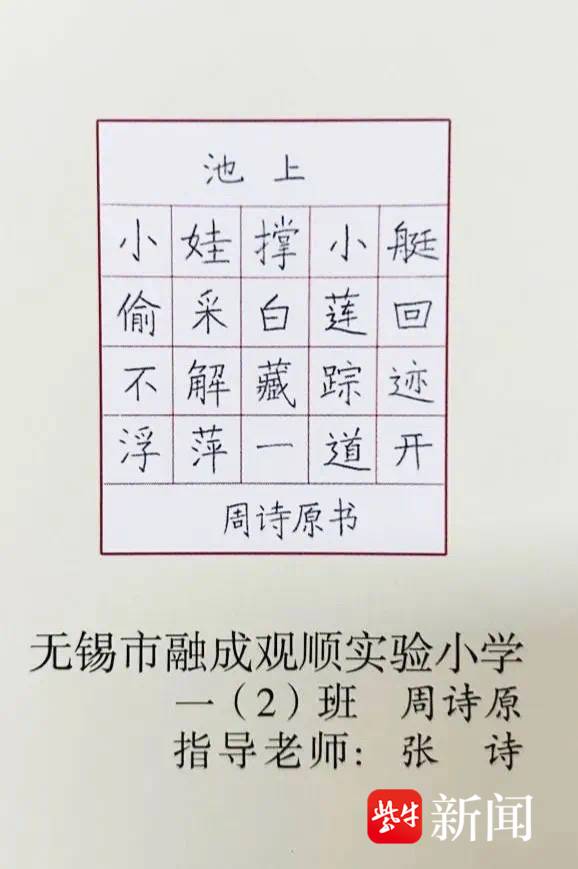 池上
小娃撑小艇
偷采白莲回
不解藏踪迹
浮萍一道开
周诗原书
无锡市融成观顺实验小学
一（2）班 周诗原
指导老师：张 诗
紫牛新闻